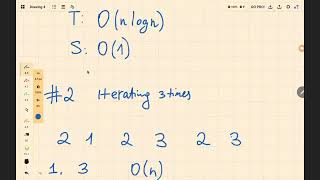 Drawing 4
GO PRO!
T: O(n logn)
S: O(1)
#2 Iterating 3 times
2 1 2 3 2 3
1. 3 O(n)